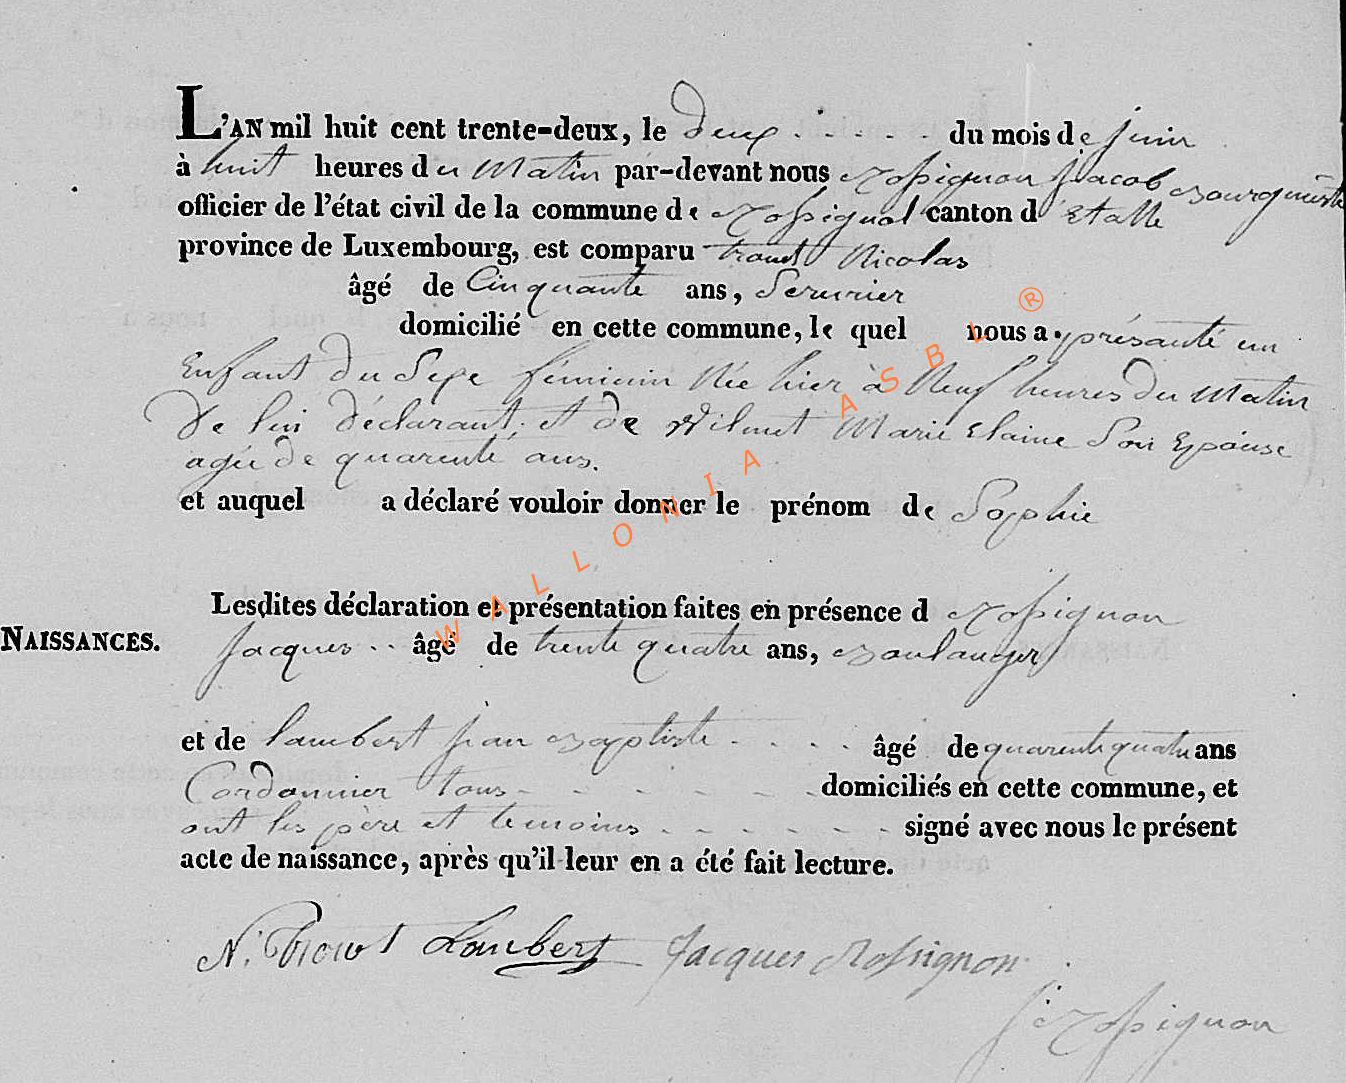 L'AN mil huit cent trente-deux, le deux du mois de juin
à huit heures du Matin par-devant nous Rossignon Jacob Bourguimestre
officier de l'état civil de la commune de Rossignol canton d'Etalle
province de Luxembourg, est comparu Nicolas
âgé de Cinquante ans, Serurier
domicilié en cette commune, le quel nous a présanté un
Enfant du Sexe féminin Née hier à Neuf heures du Matin
De lui déclarant, et de Wilmet Marie Elaine Son Epouse
agée de quarente ans.
et auquel a déclaré vouloir donner le prénom de Sophie
Lesdites déclaration et présentation faites en présence d Rossignon
NAISSANCES.
Jacques âgé de trente quatre ans, Boulanger
et de Lambert jean Baptiste âgé de quarente quatre ans
Cordonnier tous domiciliés en cette commune, et
ont les père et temoins signé avec nous le présent
acte de naissance, après qu'il leur en a été fait lecture.
N. Lambert Jacques Rossignon
J. Rossignon
WALLONIA ASBL ®